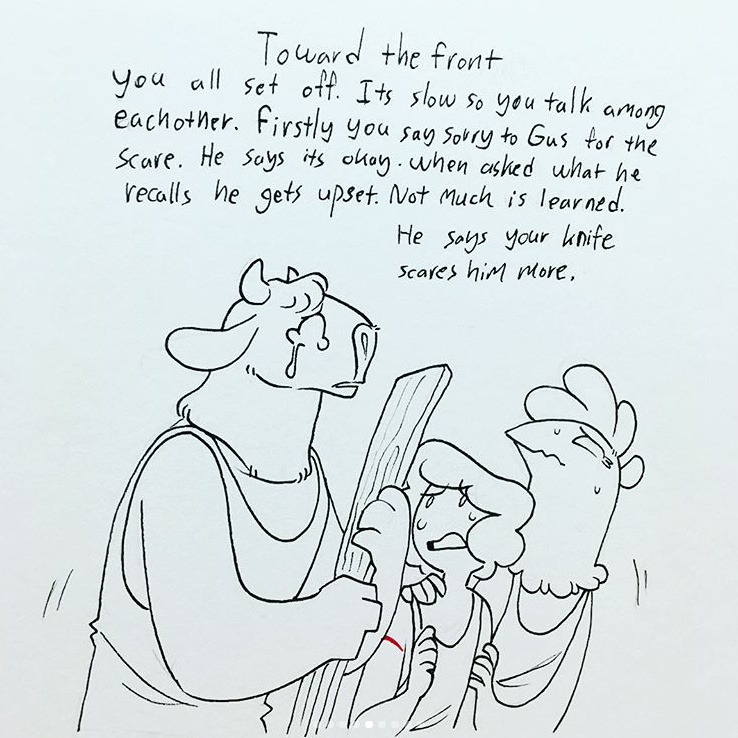 Toward the front
you all set off. Its slow so you talk among
eachother. Firstly you say sorry to Gus for the
scare. He says its okay. When asked what he
recalls he gets upset. Not much is learned.
He says your knife
scares him more.